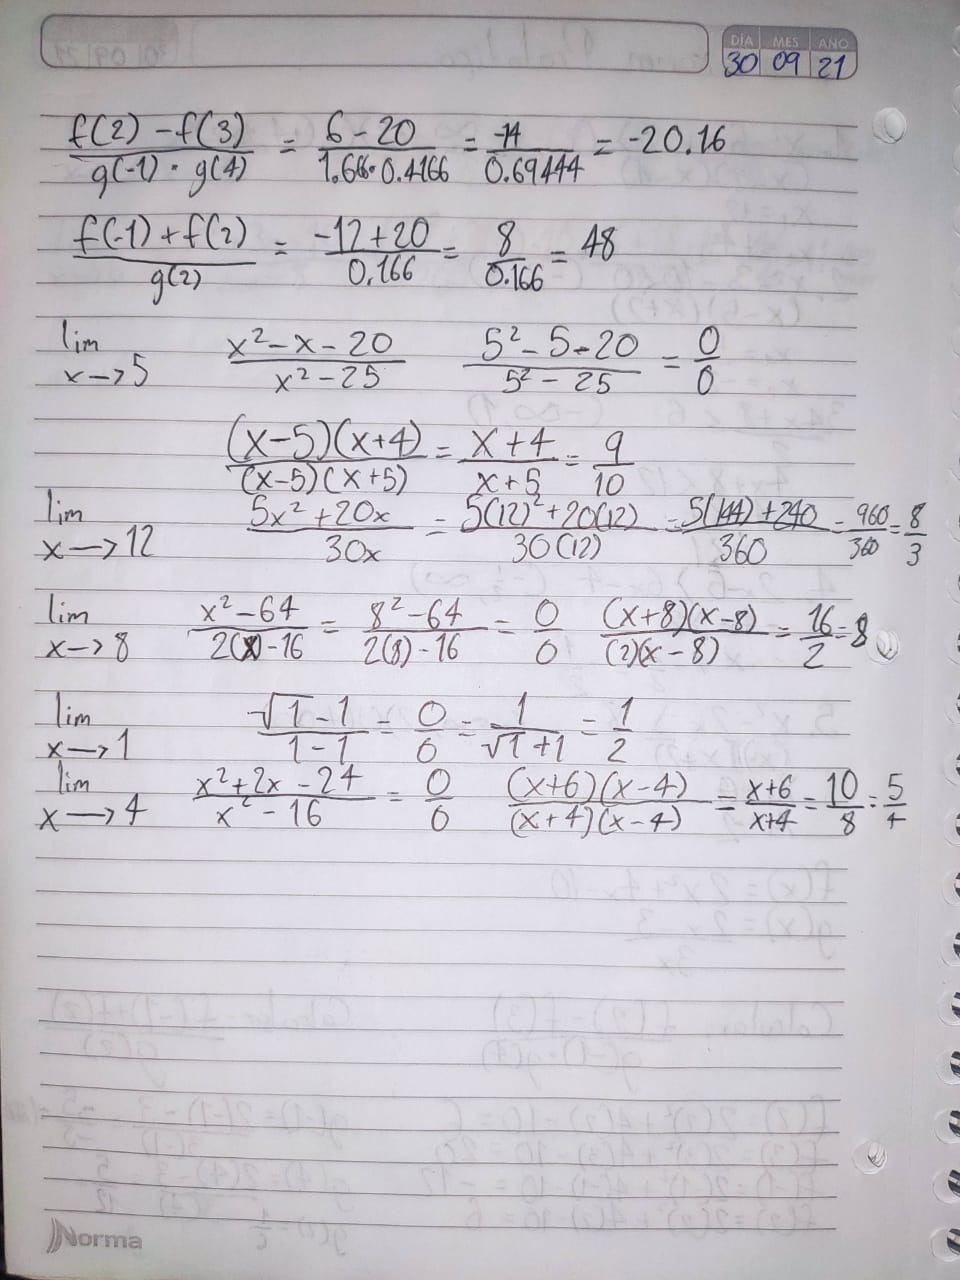 DIA MES AÑO
30 09 21
f(2) - f(3) / g(-1) · g(4) = 6 - 20 / 1.66 · 0.4166 = -14 / 0.69444 = -20.16
f(-1) + f(2) / g(2) = -12 + 20 / 0.166 = 8 / 0.166 = 48
lim x→5 x² - x - 20 / x² - 25 5² - 5 - 20 / 5² - 25 = 0/0
(x-5)(x+4) / (x-5)(x+5) = x+4 / x+5 = 9/10
lim x→12 5x² + 20x / 30x = 5(12)² + 20(12) / 30(12) = 5(144) + 240 / 360 = 960/360 = 8/3
lim x→8 x² - 64 / 2(8) - 16 = 8² - 64 / 2(8) - 16 = 0/0 (x+8)(x-8) / (2)(x-8) = 16/2 = 8
lim x→1 √1 - 1 / 1 - 1 = 0/0 = 1 / √1 + 1 = 1/2
lim x→4 x² + 2x - 24 / x² - 16 = 0/0 (x+6)(x-4) / (x+4)(x-4) = x+6 / x+4 = 10/8 = 5/4
Norma